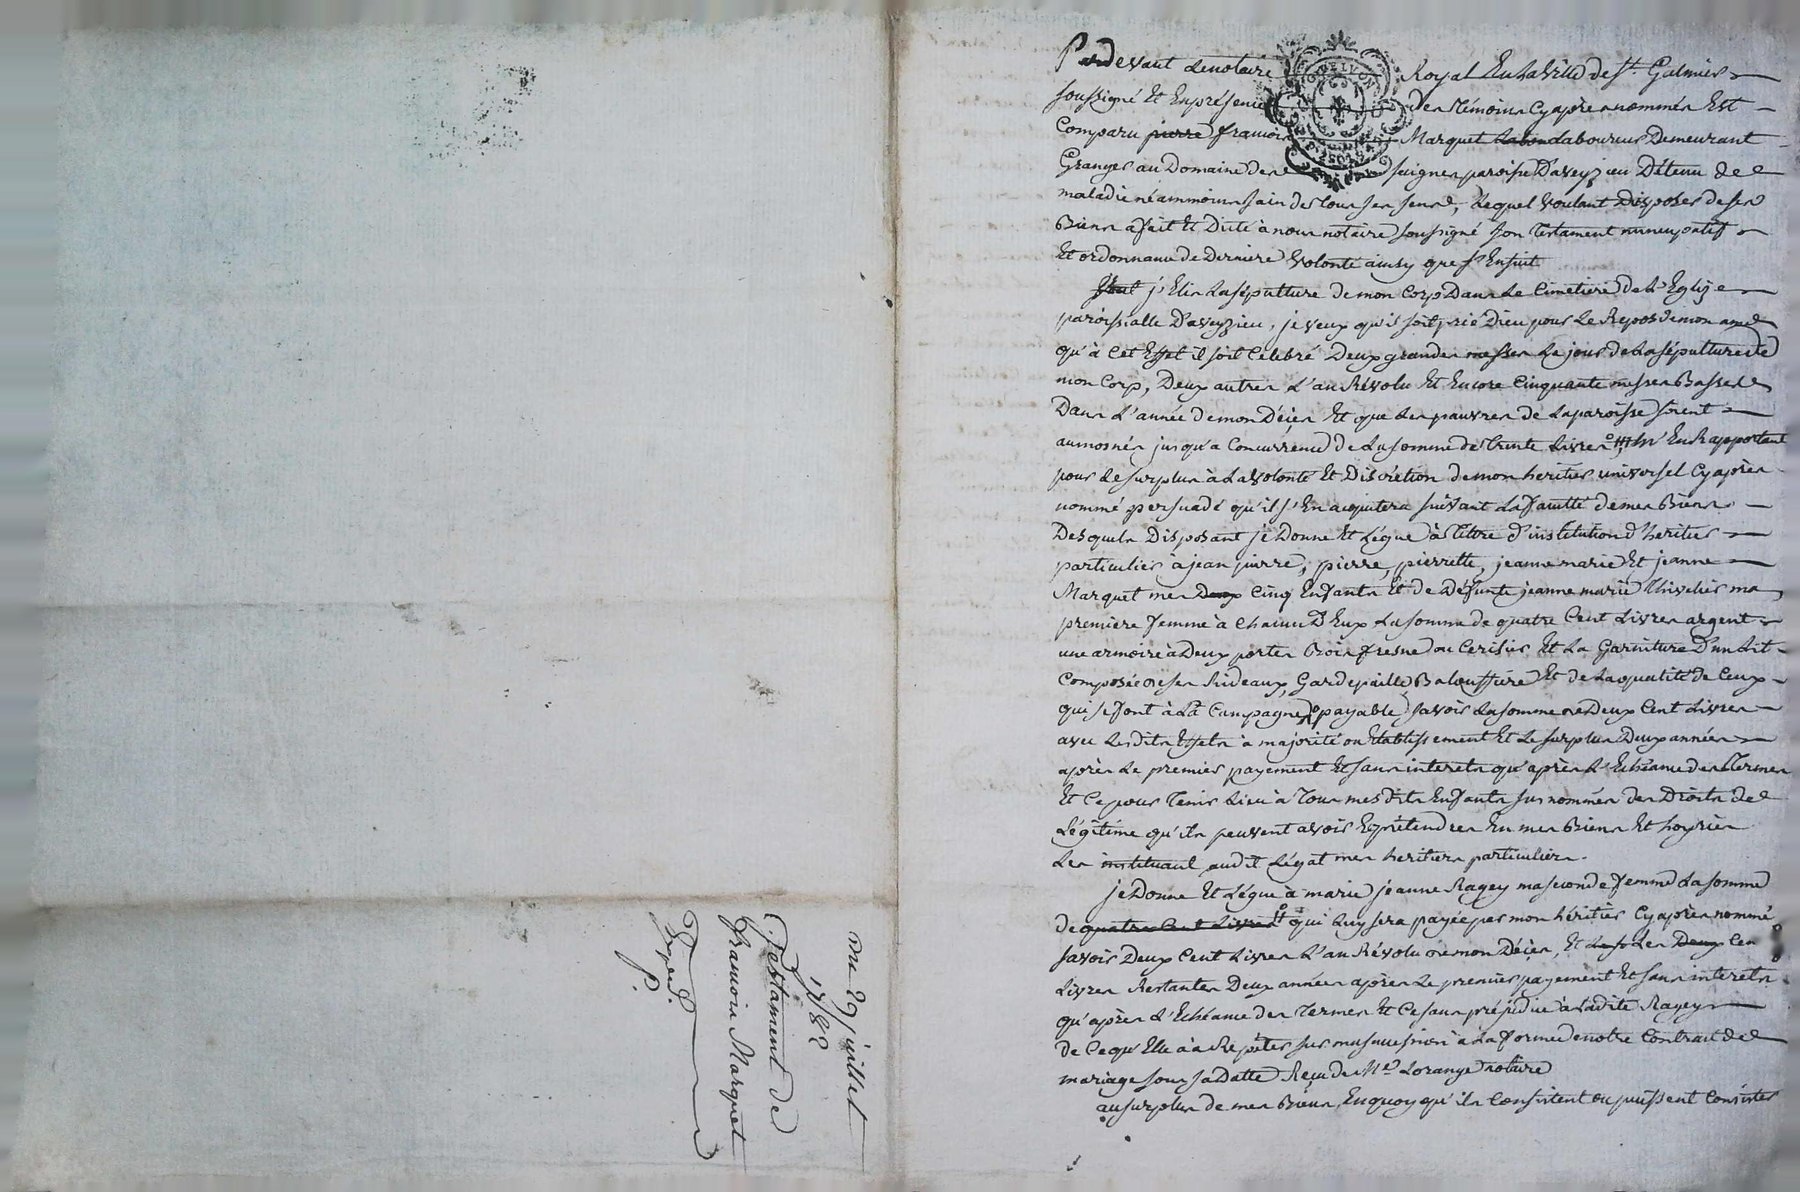 du 29 juillet
1782
Testament de
francois Marquet
Exped.
Pardevant Lenotaire Royal En La Ville de St. Galmier
soussigné Et En présence des témoins Cy après nommés Est
Comparu pierre francois Marquet Laboureur Demeurant
Granger au Domaine des paroisse D'aveyzieu Détenu de
maladie néammoins sain de tous ses sens, Lequel voulant Disposer de ses
Biens a fait Et Dicté à nous notaire soussigné son Testament nuncupatif
Et ordonnance de Derniere Volonté ainsy que s'Ensuit
j'Elis La sépulture de mon Corps Dans Le Cimetiere de L'Eglize
paroissialle D'aveyzieu, je veux qu'il soit prié Dieu pour Le Repos de mon ame
qu'à Cet Effet il soit Célébré Deux grandes messes Le jour de La sépulture de
mon Corps, Deux autres L'an Révolu Et Encore Cinquante messes Basses
Dans L'année de mon Décès Et que Les pauvres de La paroisse soient
aumosnés jusqu'a Concurrence de La somme de trente Livres m'En Rapportant
pour Le surplus à La Volonté Et Discrétion de mon heritier universel Cy après
nommé persuadé qu'il s'En acquitera suivant La faculté de mes Biens
Desquels Disposant je Donne Et Légue à Tittre d'institution d'heritier
particulier à jean pierre, pierre, pierrette, jeanne marie Et jeanne
Marquet mes Deux Cinq Enfants Et de Défunte jeanne marie Thivelier ma
premiere femme à Chacun D'Eux La somme de quatre Cent Livres argent
une armoire à Deux portes Bois fresne ou Cerisier Et La Garniture D'un Lit
Composée de ses Rideaux, Gardepaille, Balouffiere Et de La qualité de Ceux
qui se font à La Campagne, payable savoir La somme de Deux Cent Livres
avec Lesdits Effets à majorité ou Etablissement Et Le surplus Deux années
après Le premier payement Et sans interets qu'après L'Echéance des Termes
Et Ce pour Tenir Lieu à Tous mesdits Enfants sus nommés des Droits de
Légitime qu'ils peuvent avoir Et prétendre En mes Biens Et hoyrie
Les instituant audit Légat mes heritiers particuliers.
je Donne Et Légue à marie jeanne Ragey ma seconde femme La somme
de quatre Cent Livres qui Luy sera payée par mon héritier Cy après nommé
savoir Deux Cent Livres L'an Révolu de mon Décès, Et Les Deux Cen
Livres Restantes Deux années après Le premier payement Et sans interets
qu'après L'Echéance des Termes Et Ce sans préjudice à Ladite Ragey
de Ce qu'Elle a à Répéter sur ma succession à La forme de notre Contrat de
mariage sous sa Datte Reçu de Me. Lorange notaire
au surplus de mes Biens, En quoy qu'ils Consistent ou puissent Consister